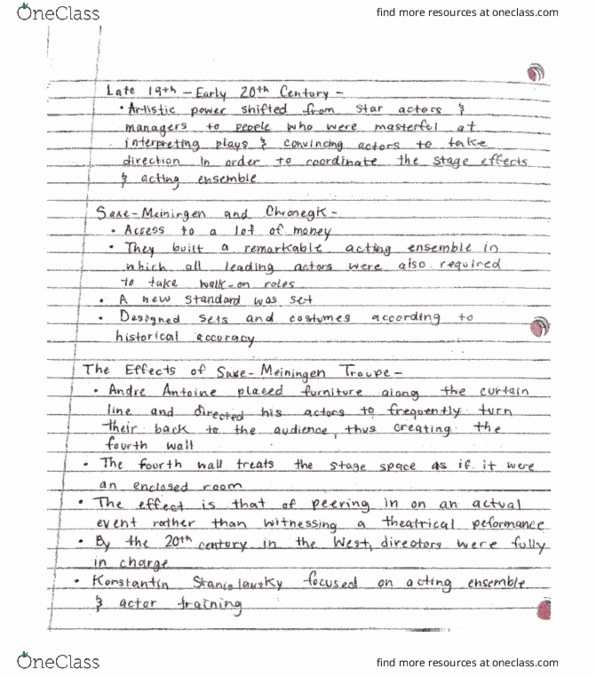 OneClass
find more resources at oneclass.com
Late 19th - Early 20th Century -
• Artistic power shifted from star actors &
managers to people who were masterful at
interpreting plays & convincing actors to take
direction in order to coordinate the stage effects
& acting ensemble
Saxe-Meiningen and Chronegk -
• Access to a lot of money
• They built a remarkable acting ensemble in
which all leading actors were also required
to take walk-on roles
• A new standard was set
• Designed sets and costumes according to
historical accuracy
The Effects of Saxe-Meiningen Troupe -
• Andre Antoine placed furniture along the curtain
line and directed his actors to frequently turn
their back to the audience, thus creating the
fourth wall
• The fourth wall treats the stage space as if it were
an enclosed room
• The effect is that of peering in on an actual
event rather than witnessing a theatrical peformance
• By the 20th century in the West, directors were fully
in charge
• Konstantin Stanislavsky focused on acting ensemble
& actor training
OneClass
find more resources at oneclass.com